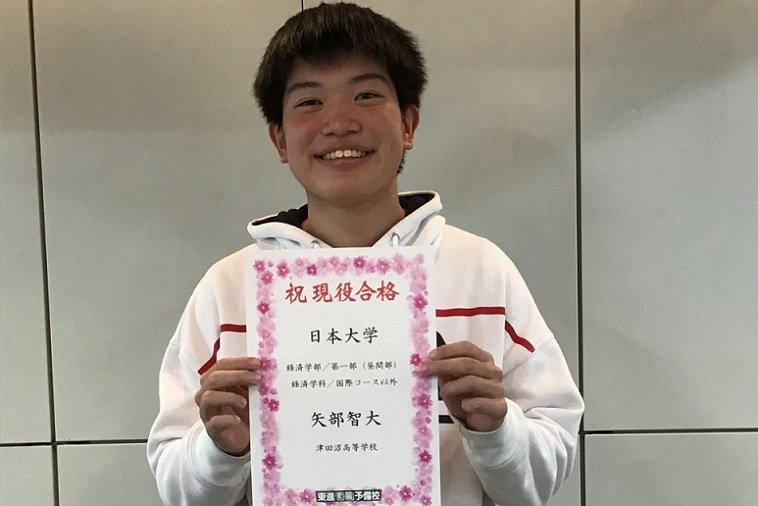 祝 現役合格
日本大学
経済学部／第一部（昼間部）
経済学科／国際コース以外
矢部智大
津田沼高等学校
東進衛星予備校